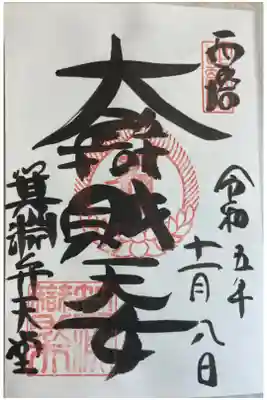 西塔
大辯財天女
令和五年
十一月八日
箕淵弁天堂